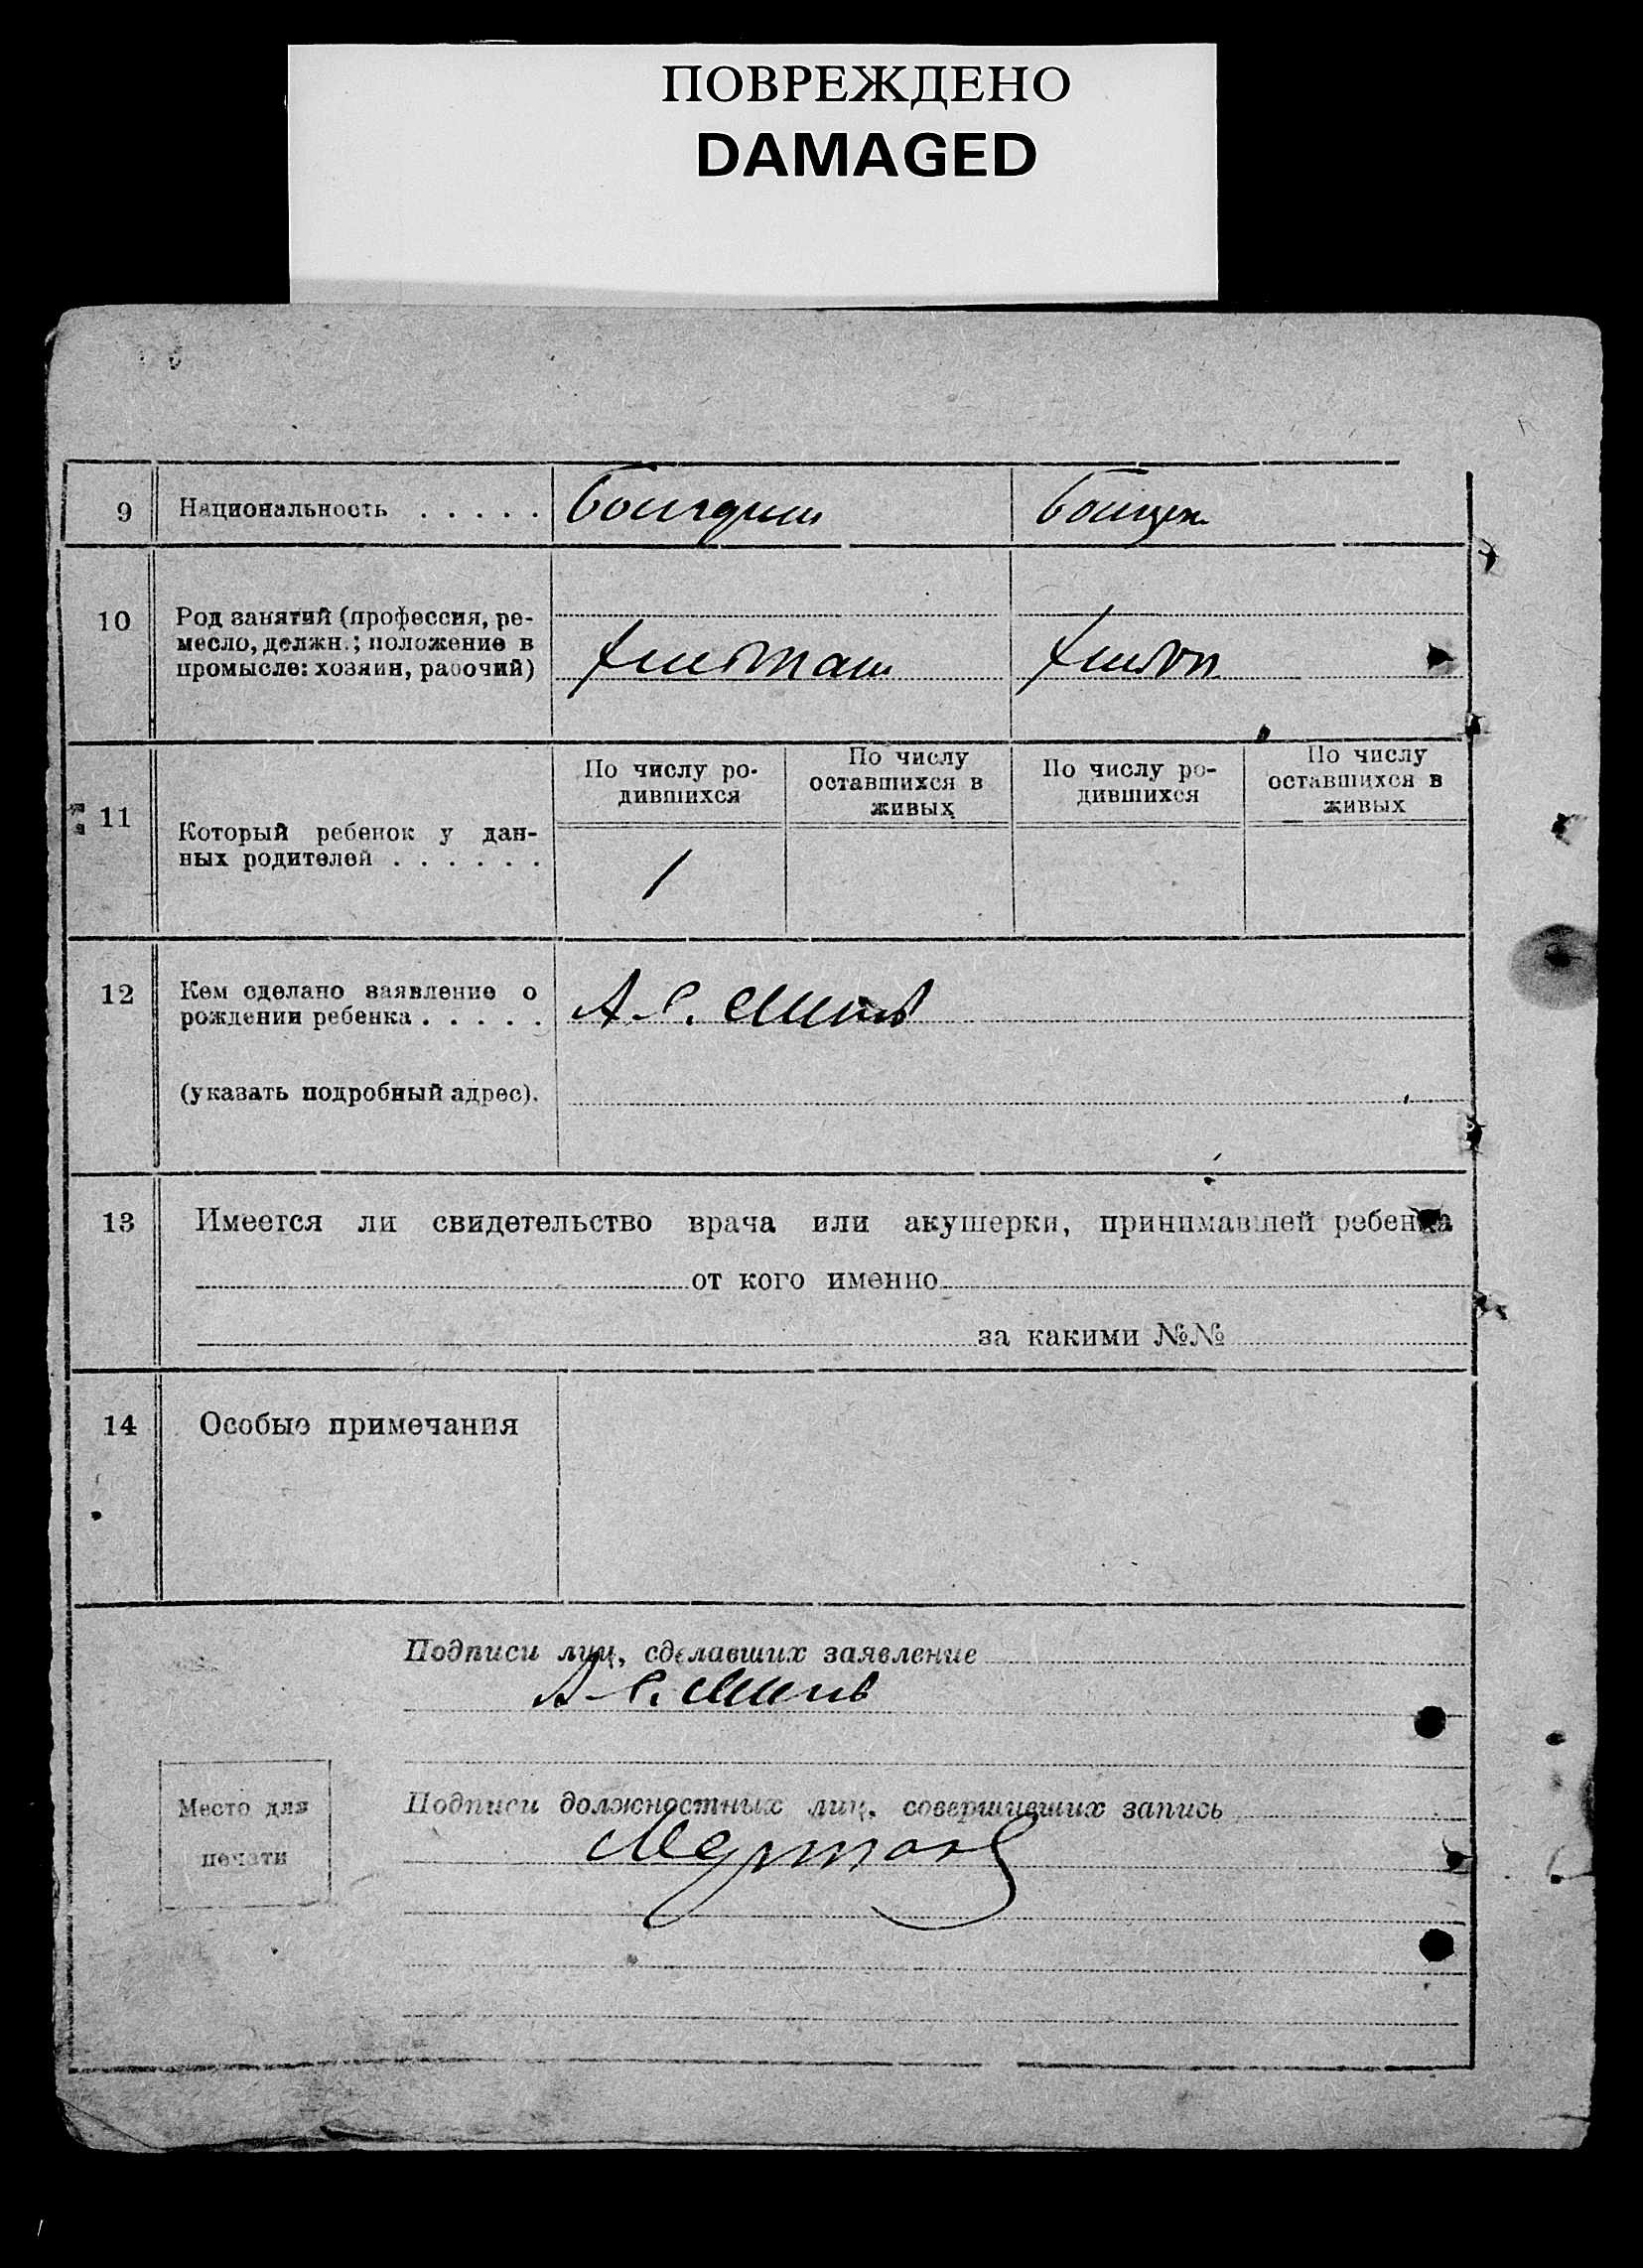 ПОВРЕЖДЕНО
DAMAGED
9 Национальность . . . . .
10 Род занятий (профессия, ре-
месло, должн.; положение в
промысле: хозяин, рабочий)
11 Который ребенок у дан-
ных родителей . . . . . .
По числу ро-
дившихся
По числу
оставшихся в
живых
По числу ро-
дившихся
По числу
оставшихся в
живых
1
12 Кем сделано заявление о
рождении ребенка . . . . .
А. С.
(указать подробный адрес).
13 Имеется ли свидетельство врача или акушерки, принимавшей ребенка
от кого именно
за какими №№
14 Особые примечания
Подписи лиц, сделавших заявление
А. С.
Место для
печати
Подписи должностных лиц, совершивших запись